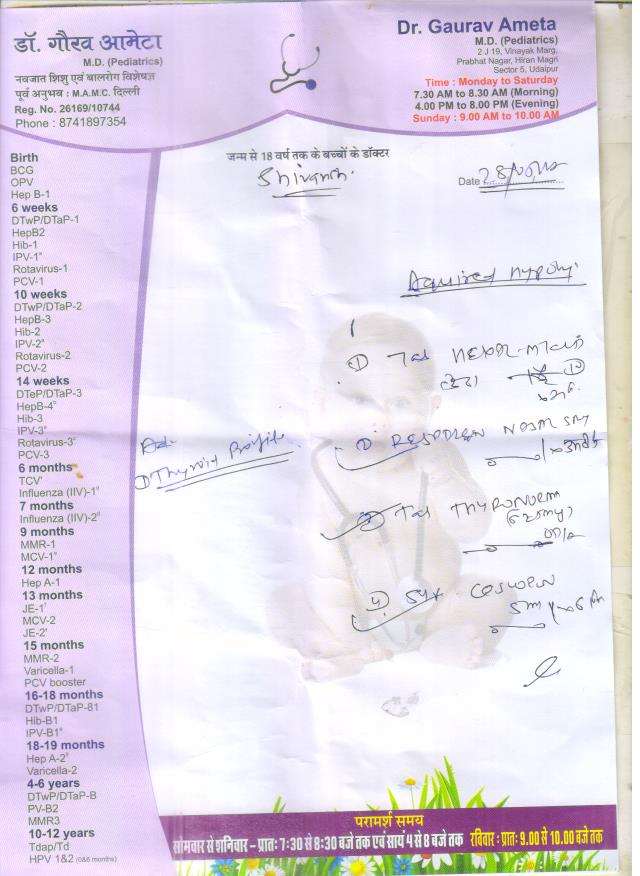 डॉ. गौरव आमेटा
M.D. (Pediatrics)
नवजात शिशु एवं बालरोग विशेषज्ञ
पूर्व अनुभव : M.A.M.C. दिल्ली
Reg. No. 26169/10744
Phone : 8741897354
Dr. Gaurav Ameta
M.D. (Pediatrics)
2 J 19, Vinayak Marg,
Prabhat Nagar, Hiran Magri
Sector 5, Udaipur
Time : Monday to Saturday
7.30 AM to 8.30 AM (Morning)
4.00 PM to 8.00 PM (Evening)
Sunday : 9.00 AM to 10.00 AM
जन्म से 18 वर्ष तक के बच्चों के डॉक्टर
Date
Birth
BCG
OPV
Hep B-1
6 weeks
DTwP/DTaP-1
HepB2
Hib-1
IPV-1
Rotavirus-1
PCV-1
10 weeks
DTwP/DTaP-2
HepB-3
Hib-2
IPV-2
Rotavirus-2
PCV-2
14 weeks
DTeP/DTaP-3
HepB-4
Hib-3
IPV-3
Rotavirus-3
PCV-3
6 months
TCV
Influenza (IIV)-1
7 months
Influenza (IIV)-2
9 months
MMR-1
MCV-1
12 months
Hep A-1
13 months
JE-1
MCV-2
JE-2
15 months
MMR-2
Varicella-1
PCV booster
16-18 months
DTwP/DTaP-81
Hib-B1
IPV-B1
18-19 months
Hep A-2
Varicella-2
4-6 years
DTwP/DTaP-B
PV-B2
MMR3
10-12 years
Tdap/Td
HPV 1&2 (0&6 months)
Acquired
① Tab
Ad:
① Thyroid Profile
Tab THYRONORM
④ Syp
परामर्श समय
सोमवार से शनिवार - प्रातः 7:30 से 8:30 बजे तक एवं सायं 4 से 8 बजे तक रविवार : प्रातः 9.00 से 10.00 बजे तक